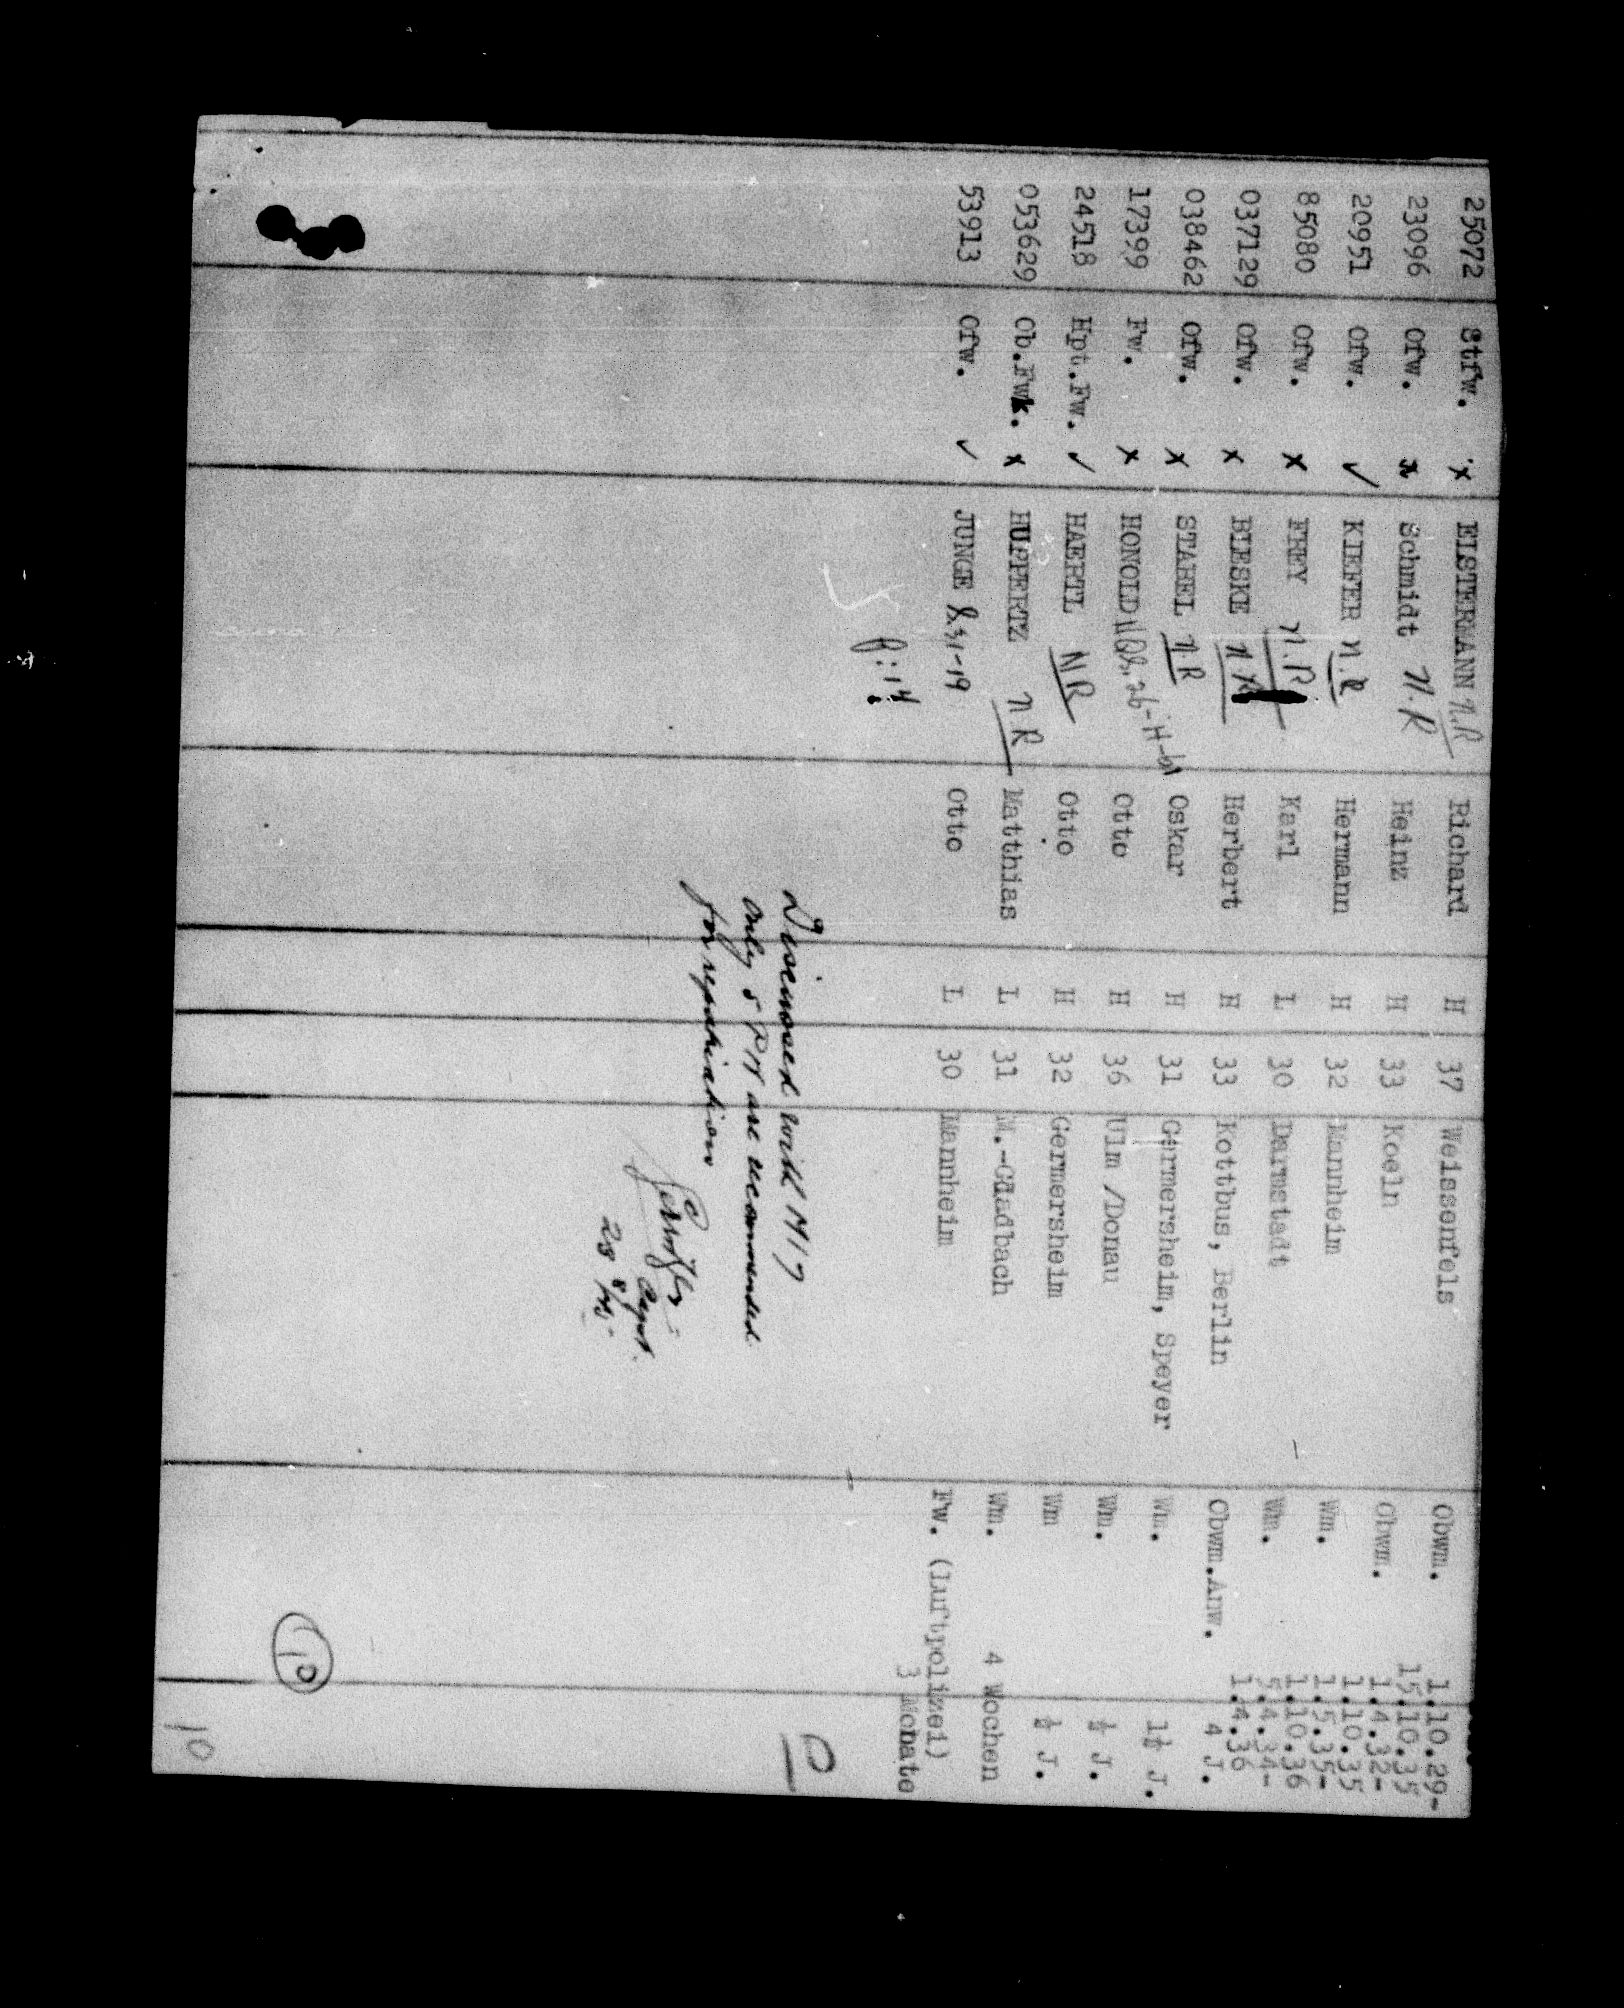 25072 Stfw. x EISTERMANN n.R Richard H 37 Weissenfels Obwm. 1.10.29-
15.10.35
23096 Ofw. x Schmidt n.R Heinz H 33 Koeln Obwm. 1.4.32-
1.10.35
20951 Ofw. ✓ KIEFER n.R Hermann H 32 Mannheim Wm. 1.5.35-
1.10.36
85080 Ofw. x FREY n.R Karl L 30 Darmstadt Wm. 5.4.34-
1.4.36
037129 Ofw. x BIESKE n R Herbert H 33 Kottbus, Berlin Obwm.Anw. 4 J.
038462 Ofw. x STAHEL n.R Oskar H 31 Germersheim, Speyer Wm. 1½ J.
17399 Fw. x HONOLD Otto H 36 Ulm /Donau Wm. ½ J.
24518 Hpt.Fw. ✓ HAERTL NR Otto H 32 Germersheim Wm ½ J.
053629 Ob.Fwk. x HUPPERTZ n R Matthias L 31 M.-Gladbach Wm. 4 Wochen
53913 Ofw. ✓ JUNGE Otto L 30 Mannheim Fw. (Luftpolizei)
3 Monate
P:14
D
Discussed with M17
only 5 PW are recommended
for repatriation
Capt.
28 8/45
10
10